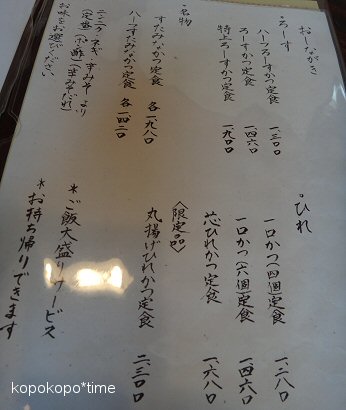 おしながき
・ろーす
ハーフろーすかつ定食 一、三〇〇
ろーすかつ定食 一、四六〇
特上ろーすかつ定食 一、九〇〇
・名物
すたみなかつ定食 各一、九八〇
ハーフすたみなかつ定食 各一、四二〇
ニンニク・ネギ・辛みそより
お味をお選びください。
・ひれ
一口かつ(四個)定食 一、二八〇
一口かつ(六個)定食 一、四六〇
芯ひれかつ定食 一、六八〇
〈限定品〉
丸揚げひれかつ定食 二、三〇〇
*ご飯大盛りサービス
*お持ち帰りできます
kopokopo*time